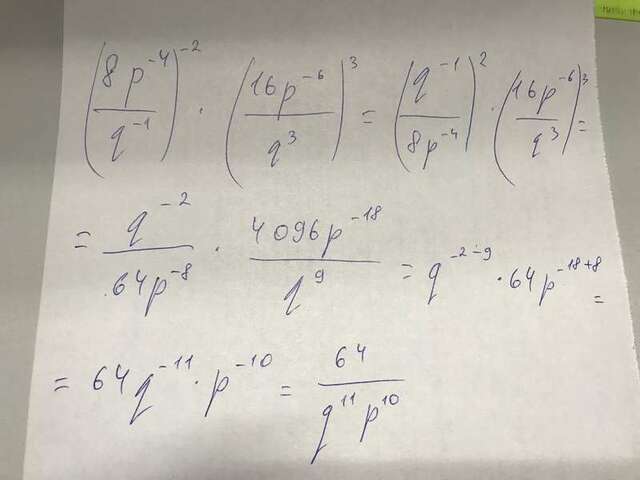 (8p⁻⁴/q⁻¹)⁻² · (16p⁻⁶/q³)³ = (q⁻¹/8p⁻⁴)² · (16p⁻⁶/q³)³ =
= q⁻²/64p⁻⁸ · 4096p⁻¹⁸/q⁹ = q⁻²⁻⁹ · 64p⁻¹⁸⁺⁸ =
= 64q⁻¹¹ · p⁻¹⁰ = 64/q¹¹p¹⁰